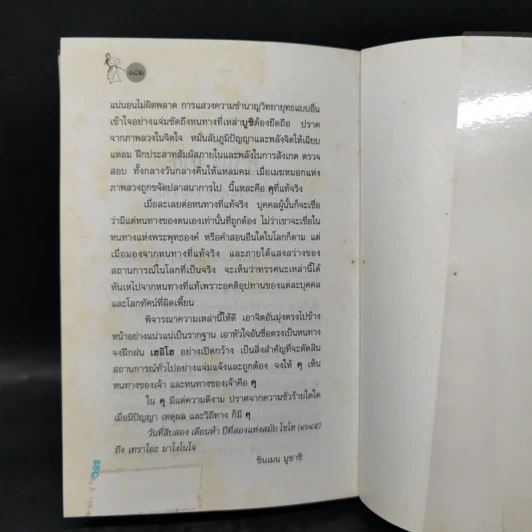 ๑๔๒
แน่นอนไม่ผิดพลาด การแสวงความชำนาญวิทยายุทธแบบอื่น
เข้าใจอย่างแจ่มชัดถึงหนทางที่เหล่าบูชิต้องยึดถือ ปราศ
จากภาพลวงในจิตใจ หมั่นลับภูมิปัญญาและพลังจิตให้เฉียบ
แหลม ฝึกประสาทสัมผัสภายในและพลังในการสังเกต ตรวจ
สอบ ทั้งกลางวันกลางคืนให้แหลมคม เมื่อเมฆหมอกแห่ง
ภาพลวงถูกขจัดปลาสนาการไป นี้แหละคือ คุ ที่แท้จริง
เมื่อละเลยต่อหนทางที่แท้จริง บุคคลผู้นั้นก็จะเชื่อ
ว่ามีแต่หนทางของตนเองเท่านั้นที่ถูกต้อง ไม่ว่าเขาจะเชื่อใน
หนทางแห่งพระพุทธองค์ หรือคำสอนอื่นใดในโลกก็ตาม แต่
เมื่อมองจากหนทางที่แท้จริง และภายใต้แสงสว่างของ
สถานการณ์ในโลกที่เป็นจริง จะเห็นว่าทรรศนะเหล่านี้ได้
หันเหไปจากหนทางที่แท้เพราะอคติอุปทานของแต่ละบุคคล
และโลกทัศน์ที่ผิดเพี้ยน
พิจารณาความเหล่านี้ให้ดี เอาจิตอันมุ่งตรงไปข้าง
หน้าอย่างแน่วแน่เป็นรากฐาน เอาหัวใจอันซื่อตรงเป็นหนทาง
จงฝึกฝน เฮอิโฮ อย่างเปิดกว้าง เป็นสิ่งสำคัญที่จะตัดสิน
สถานการณ์ทั่วไปอย่างแจ่มแจ้งและถูกต้อง จงให้ คุ เห็น
หนทางของเจ้า และหนทางของเจ้าคือ คุ
ใน คุ มีแต่ความดีงาม ปราศจากความชั่วร้ายใดใด
เมื่อมีปัญญา เหตุผล และวิถีทาง ก็มี คุ
วันที่สิบสอง เดือนห้า ปีที่สองแห่งสมัย โชโฮ (๑๖๔๕)
ถึง เทราโอะ มาโงโนโจ
ชินเมน มูซาชิ